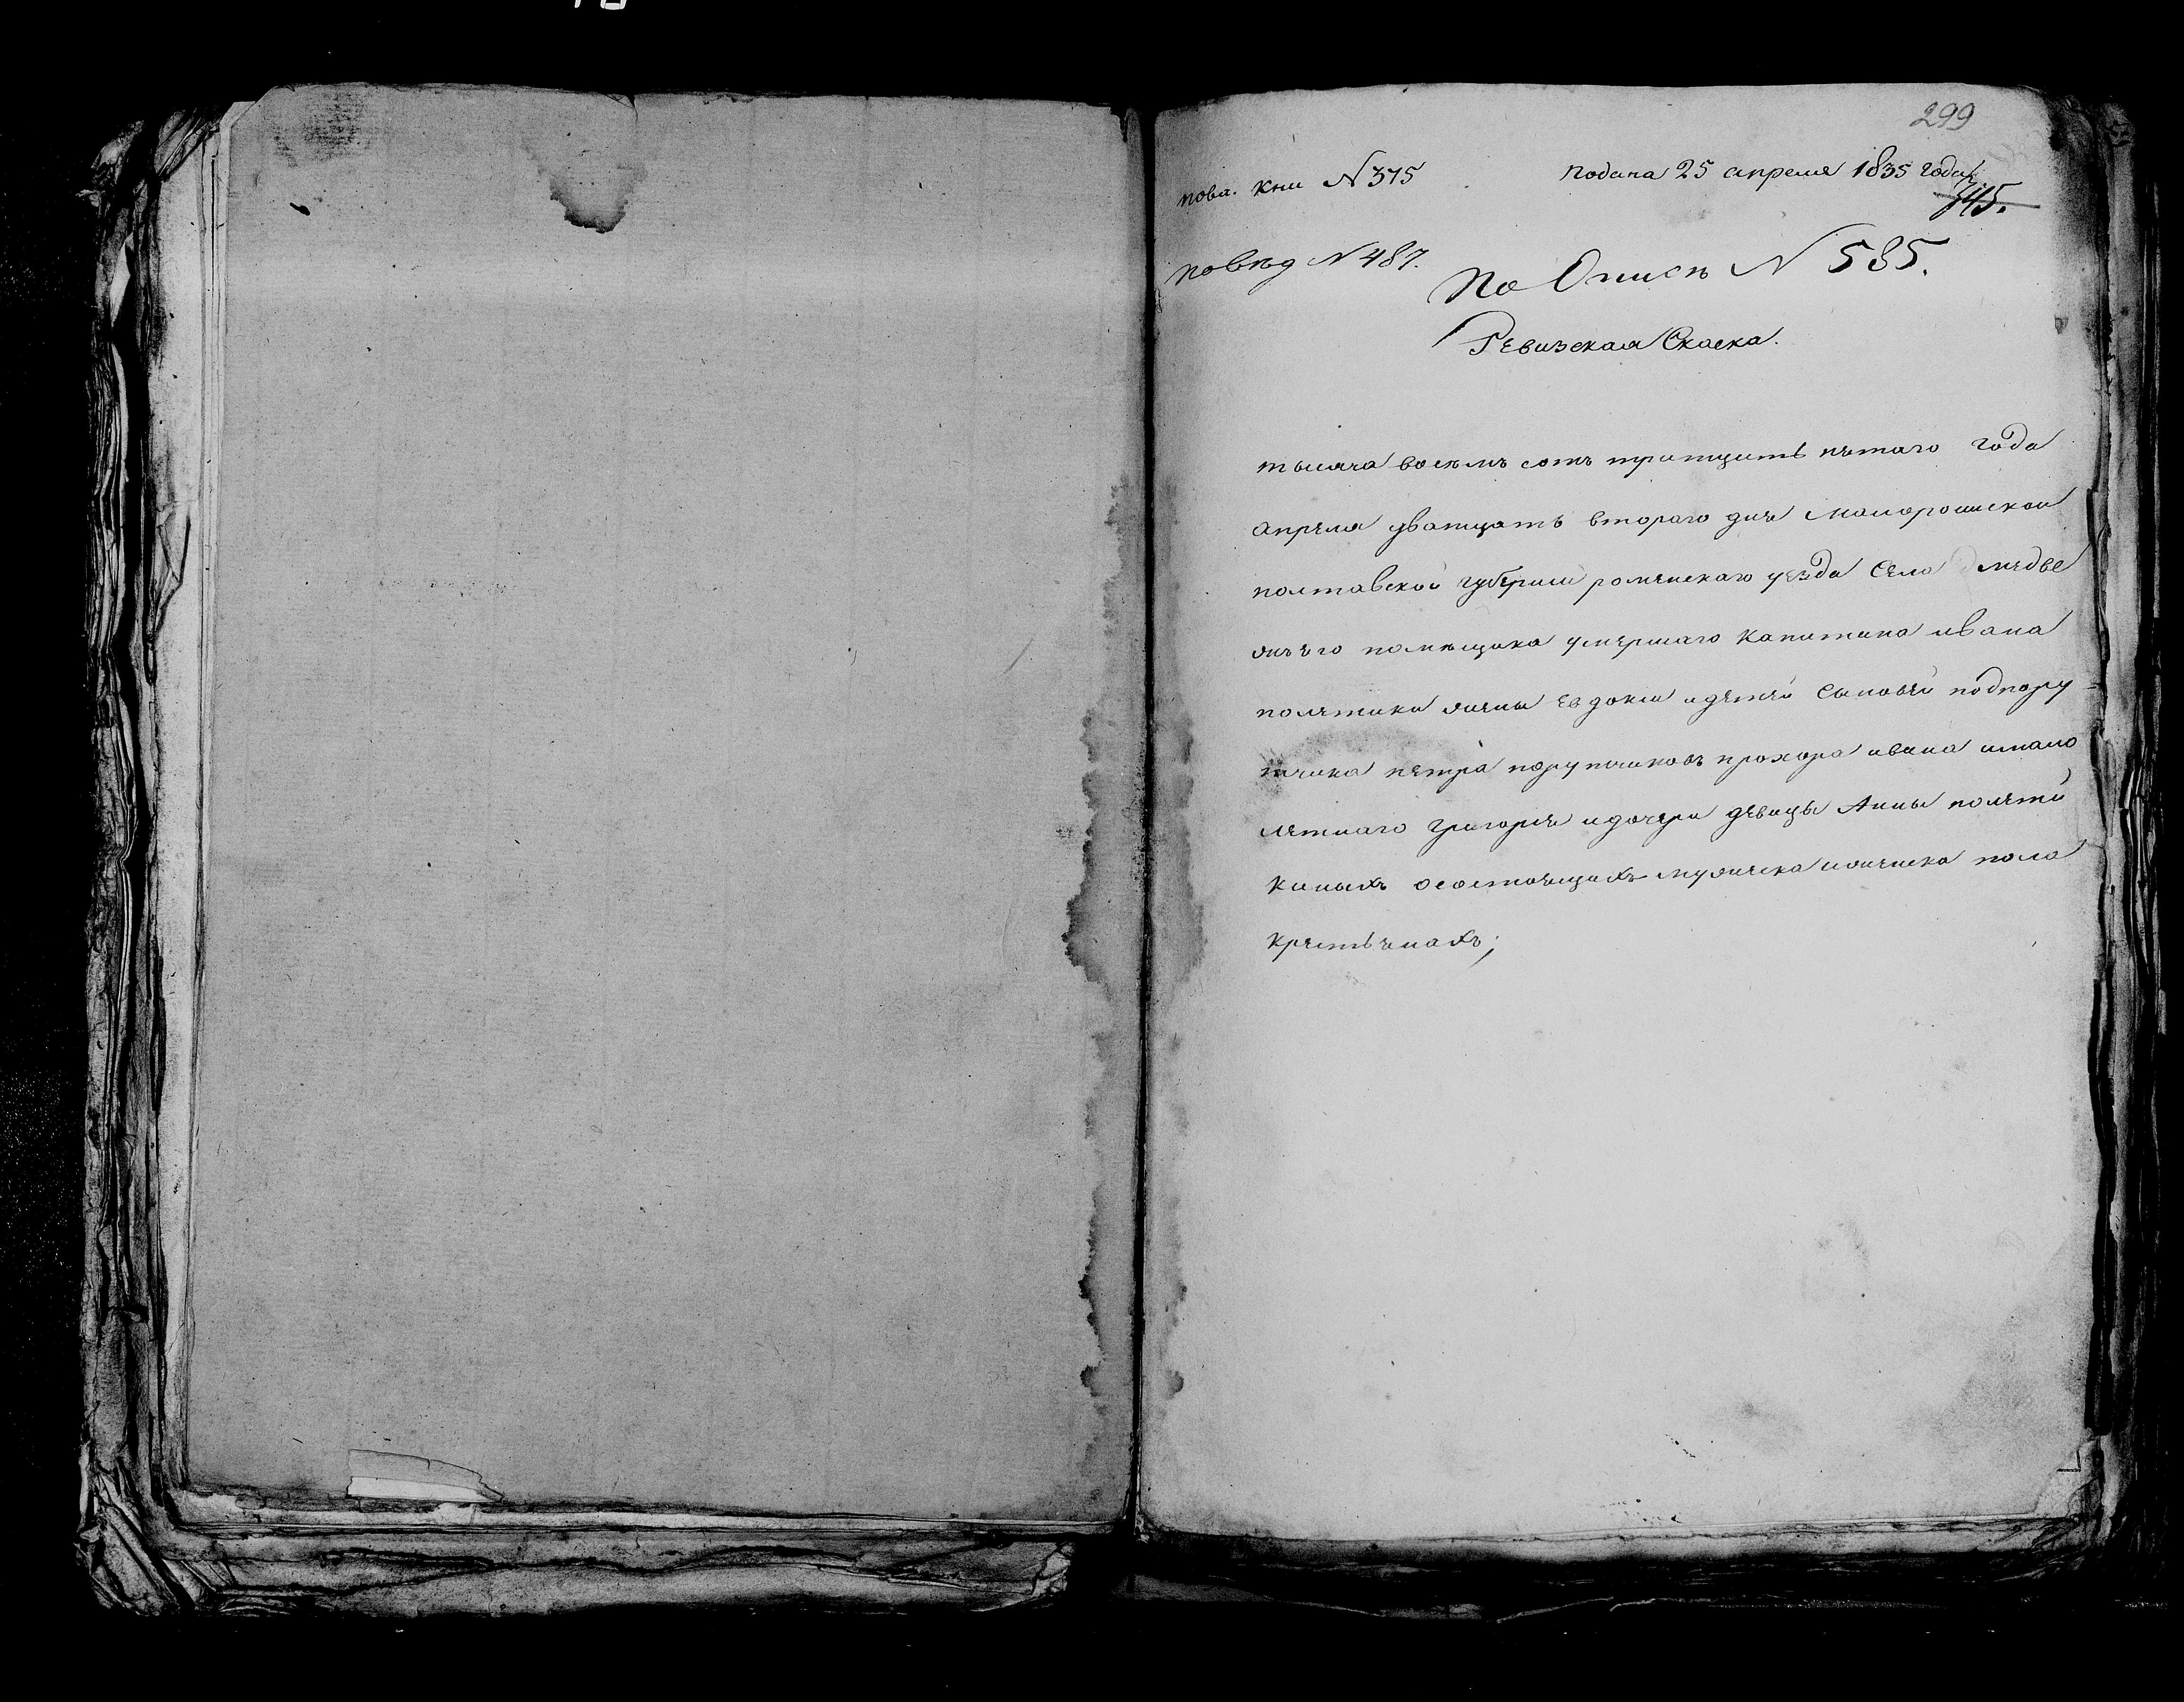 299
пова. кни N 375
подана 25 апреля 1835 года
345.
повѣд N 487.
По Описи N 585.
Ревизская Скаска.
тысяча восемъ сотъ тритцать пятаго года
апреля дватцать втораго дня Малоросийской
полтавской губернии роменскаго уезда села медве
жъего помещика умершаго капитана ивана
полетики жены евдокии идетей сыновей подпору
тчика петра порутчиковъ прохора ивана имало
летнаго григория идочери девицы Анны полети
киныхъ осостоящихъ мужеска иженска пола
крестьянахъ;